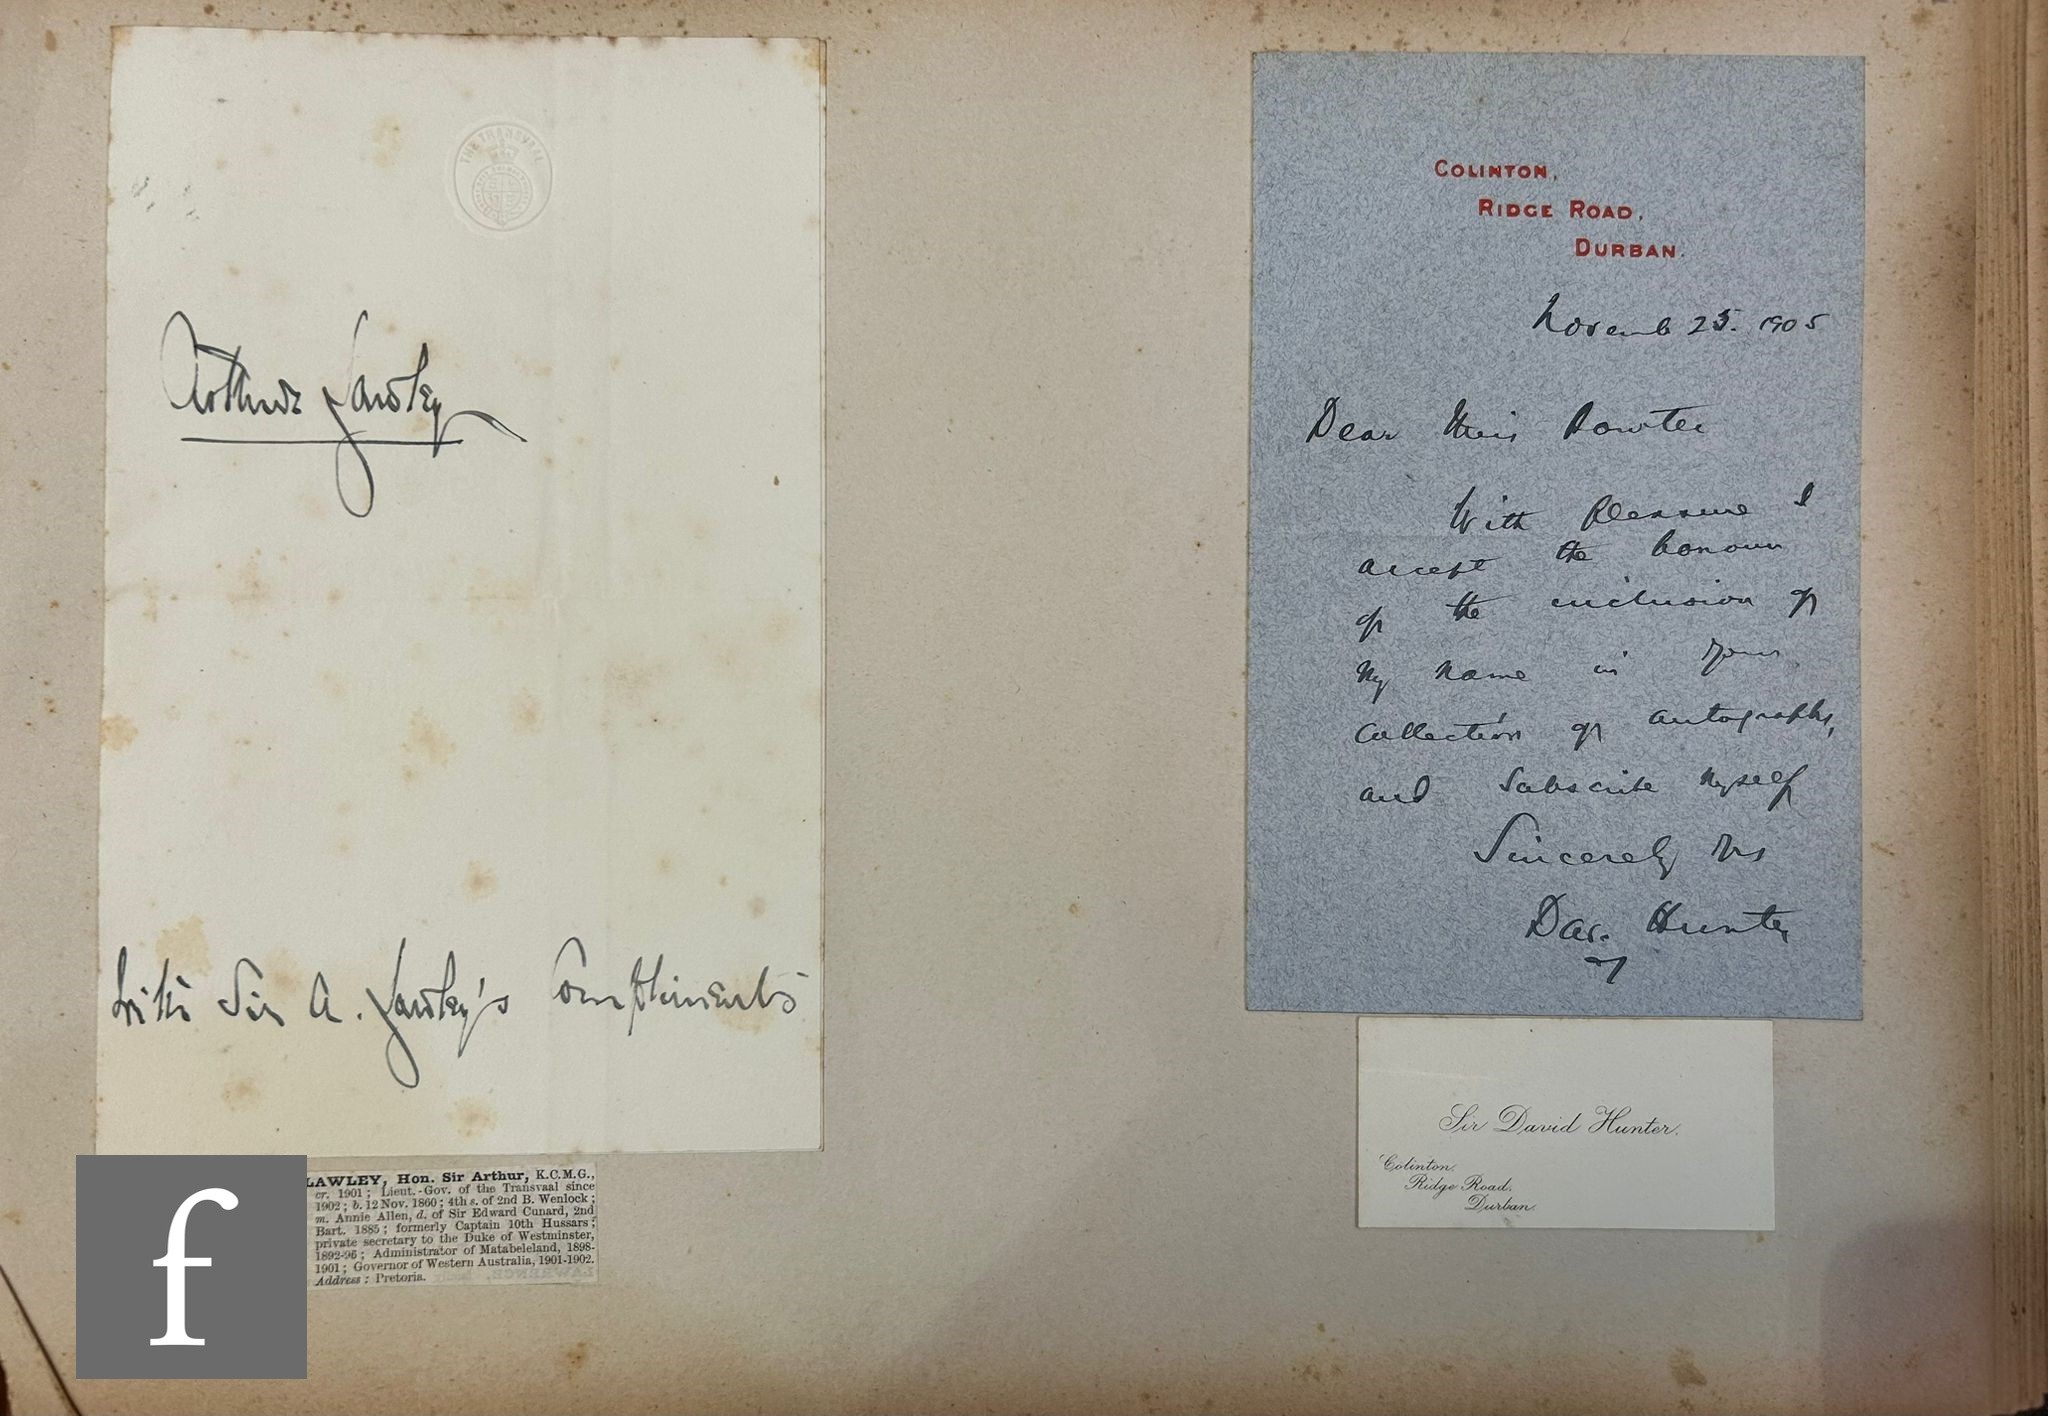 THE TRANSVAAL
Arthur Lawley
With Sir A. Lawley's Compliments
LAWLEY, Hon. Sir Arthur, K.C.M.G.,
cr. 1901; Lieut.-Gov. of the Transvaal since
1902; b. 12 Nov. 1860; 4th s. of 2nd B. Wenlock;
m. Annie Allen, d. of Sir Edward Cunard, 2nd
Bart. 1885; formerly Captain 10th Hussars;
private secretary to the Duke of Westminster,
1892-96; Administrator of Matabeleland, 1898-
1901; Governor of Western Australia, 1901-1902.
Address: Pretoria.
f
COLINTON,
RIDGE ROAD,
DURBAN.
November 25. 1905
Dear Miss
With pleasure I
accept the honour
of the inclusion of
my name in your
collection of autographs,
and subscribe myself
Sincerely Yrs
Dav. Hunter
Sir David Hunter.
Colinton.
Ridge Road.
Durban.